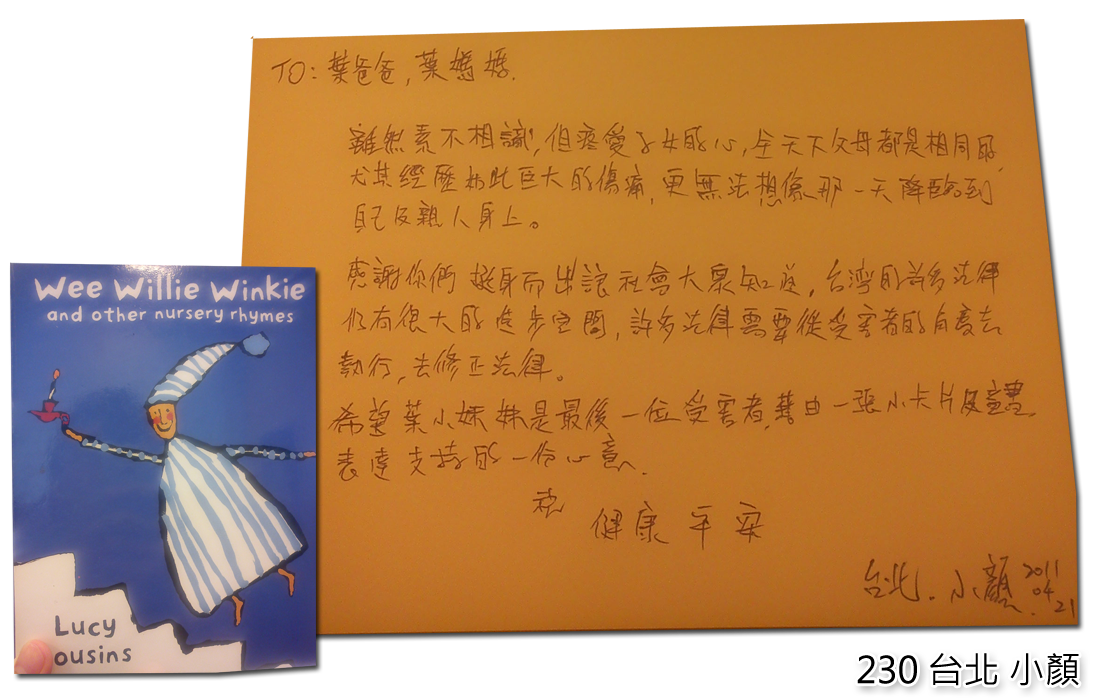 TO: 葉爸爸, 葉媽媽.
雖然素不相識, 但疼愛子女的心, 全天下父母都是相同的,
尤其經歷如此巨大的傷痛, 更無法想像那一天降臨到
自己及親人身上。
感謝你們 挺身而出讓社會大眾知道, 台灣的許多法律
仍有很大的進步空間, 許多法律需要從受害者的角度去
執行, 去修正法律。
希望葉小妹妹是最後一位受害者, 藉由一張小卡片及童書
表達支持的一份心意.
祝
健康平安
台北. 小顏 2011
04
21
Wee Willie Winkie
and other nursery rhymes
Lucy
ousins
230 台北 小顏